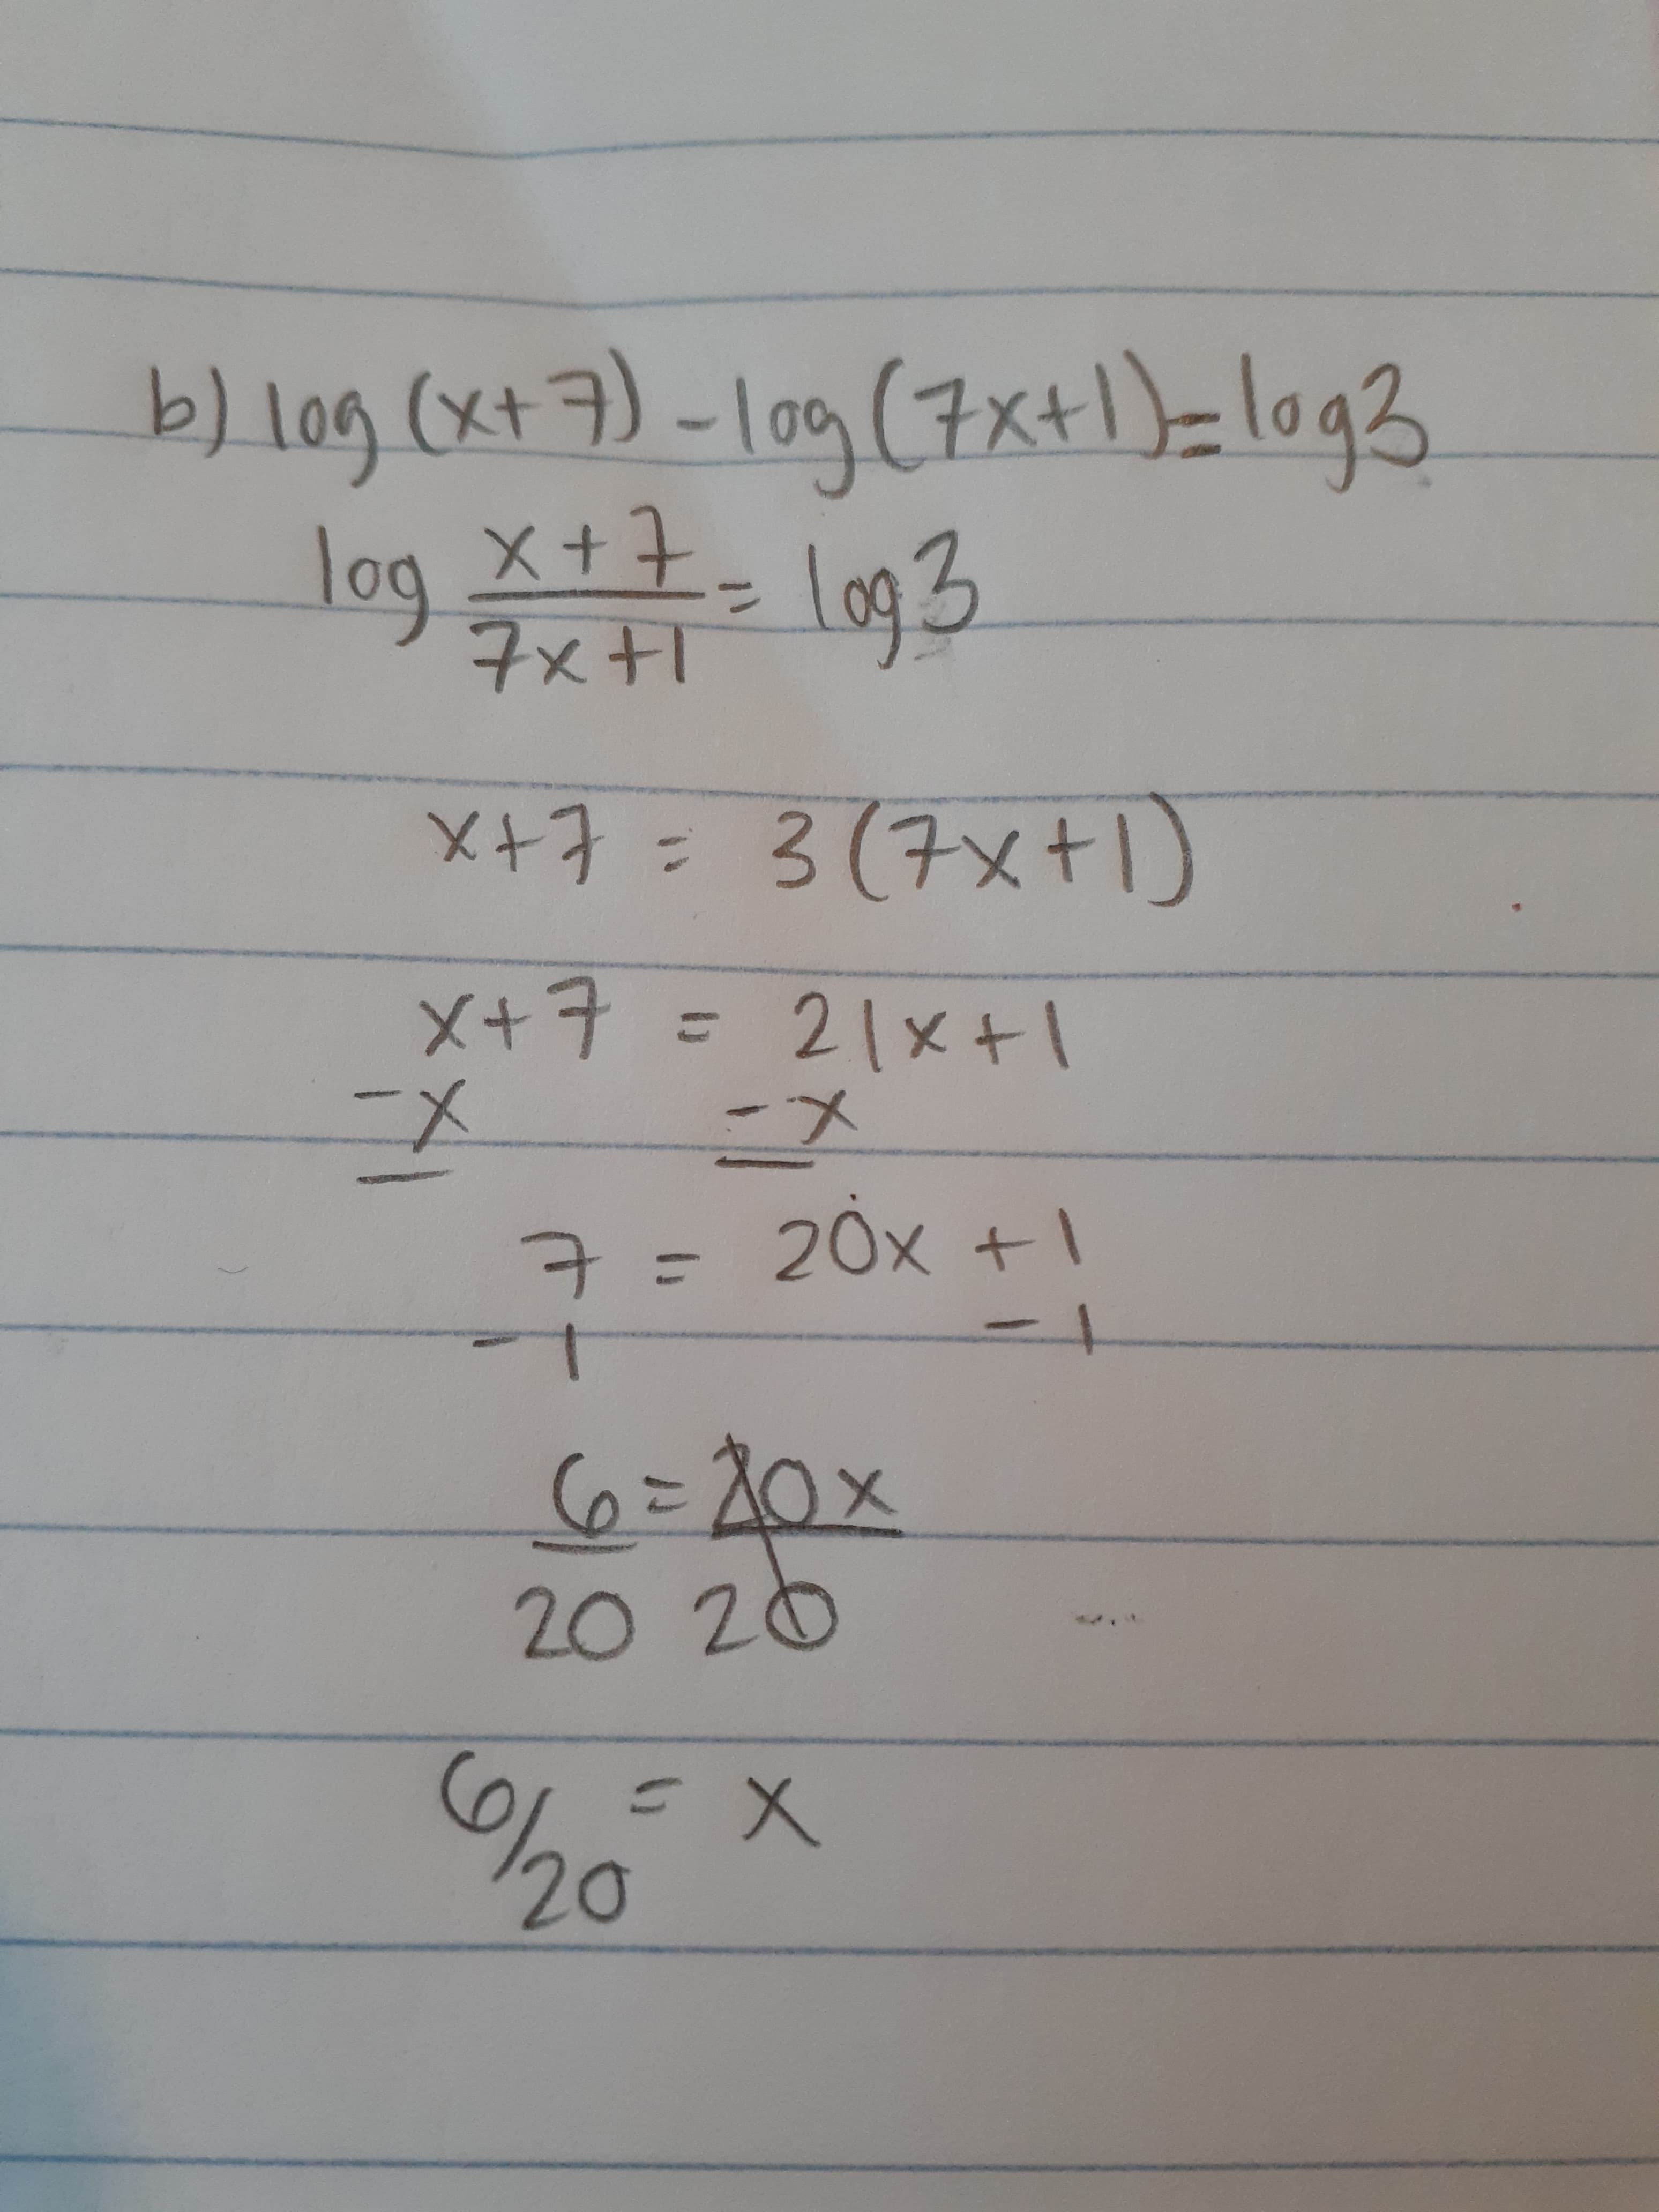 b) log (x+7) - log (7x+1) = log 3
log x+7 = log 3
7x+1
x+7 = 3(7x+1)
x+7 = 21x+1
-x -x
7 = 20x + 1
-1 -1
6 = 20x
20 20
6/20 = x